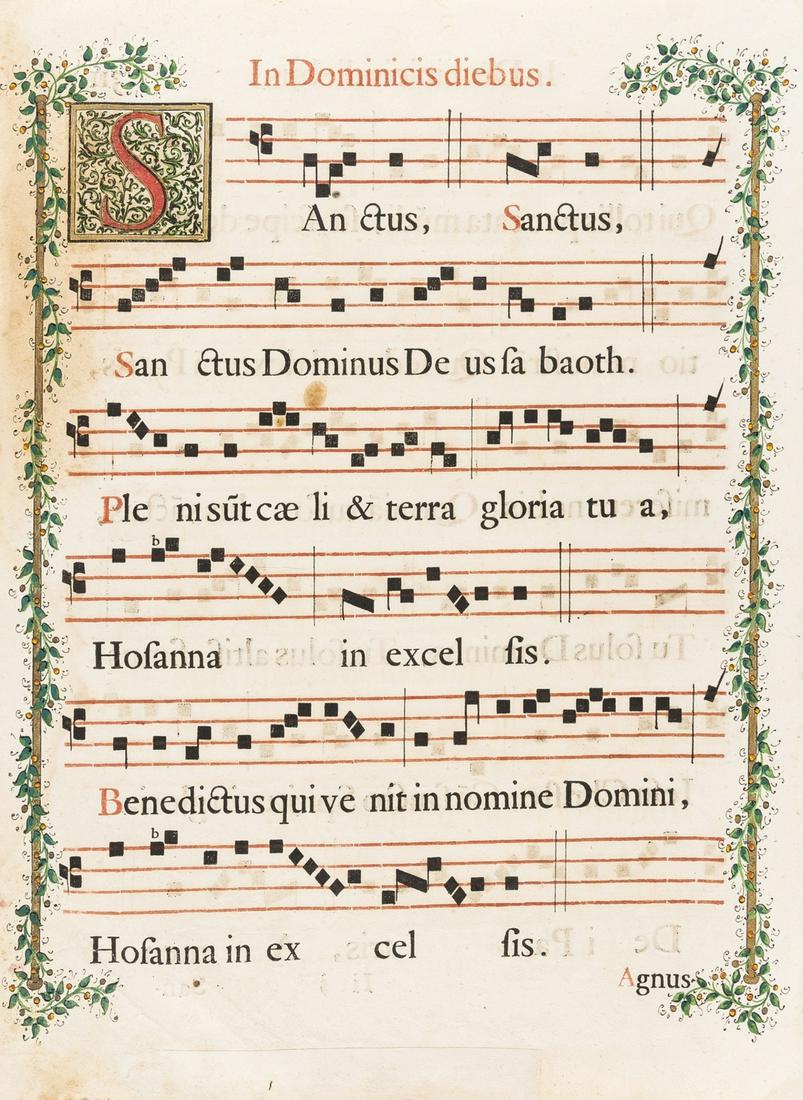 In Dominicis diebus.
SAn ctus, Sanctus,
San ctus Dominus De us ſa baoth.
Ple ni sūt cæ li & terra gloria tu a,
b
Hoſanna in excel ſis.
Benedictus qui ve nit in nomine Domini,
b
Hoſanna in ex cel ſis.
Agnus